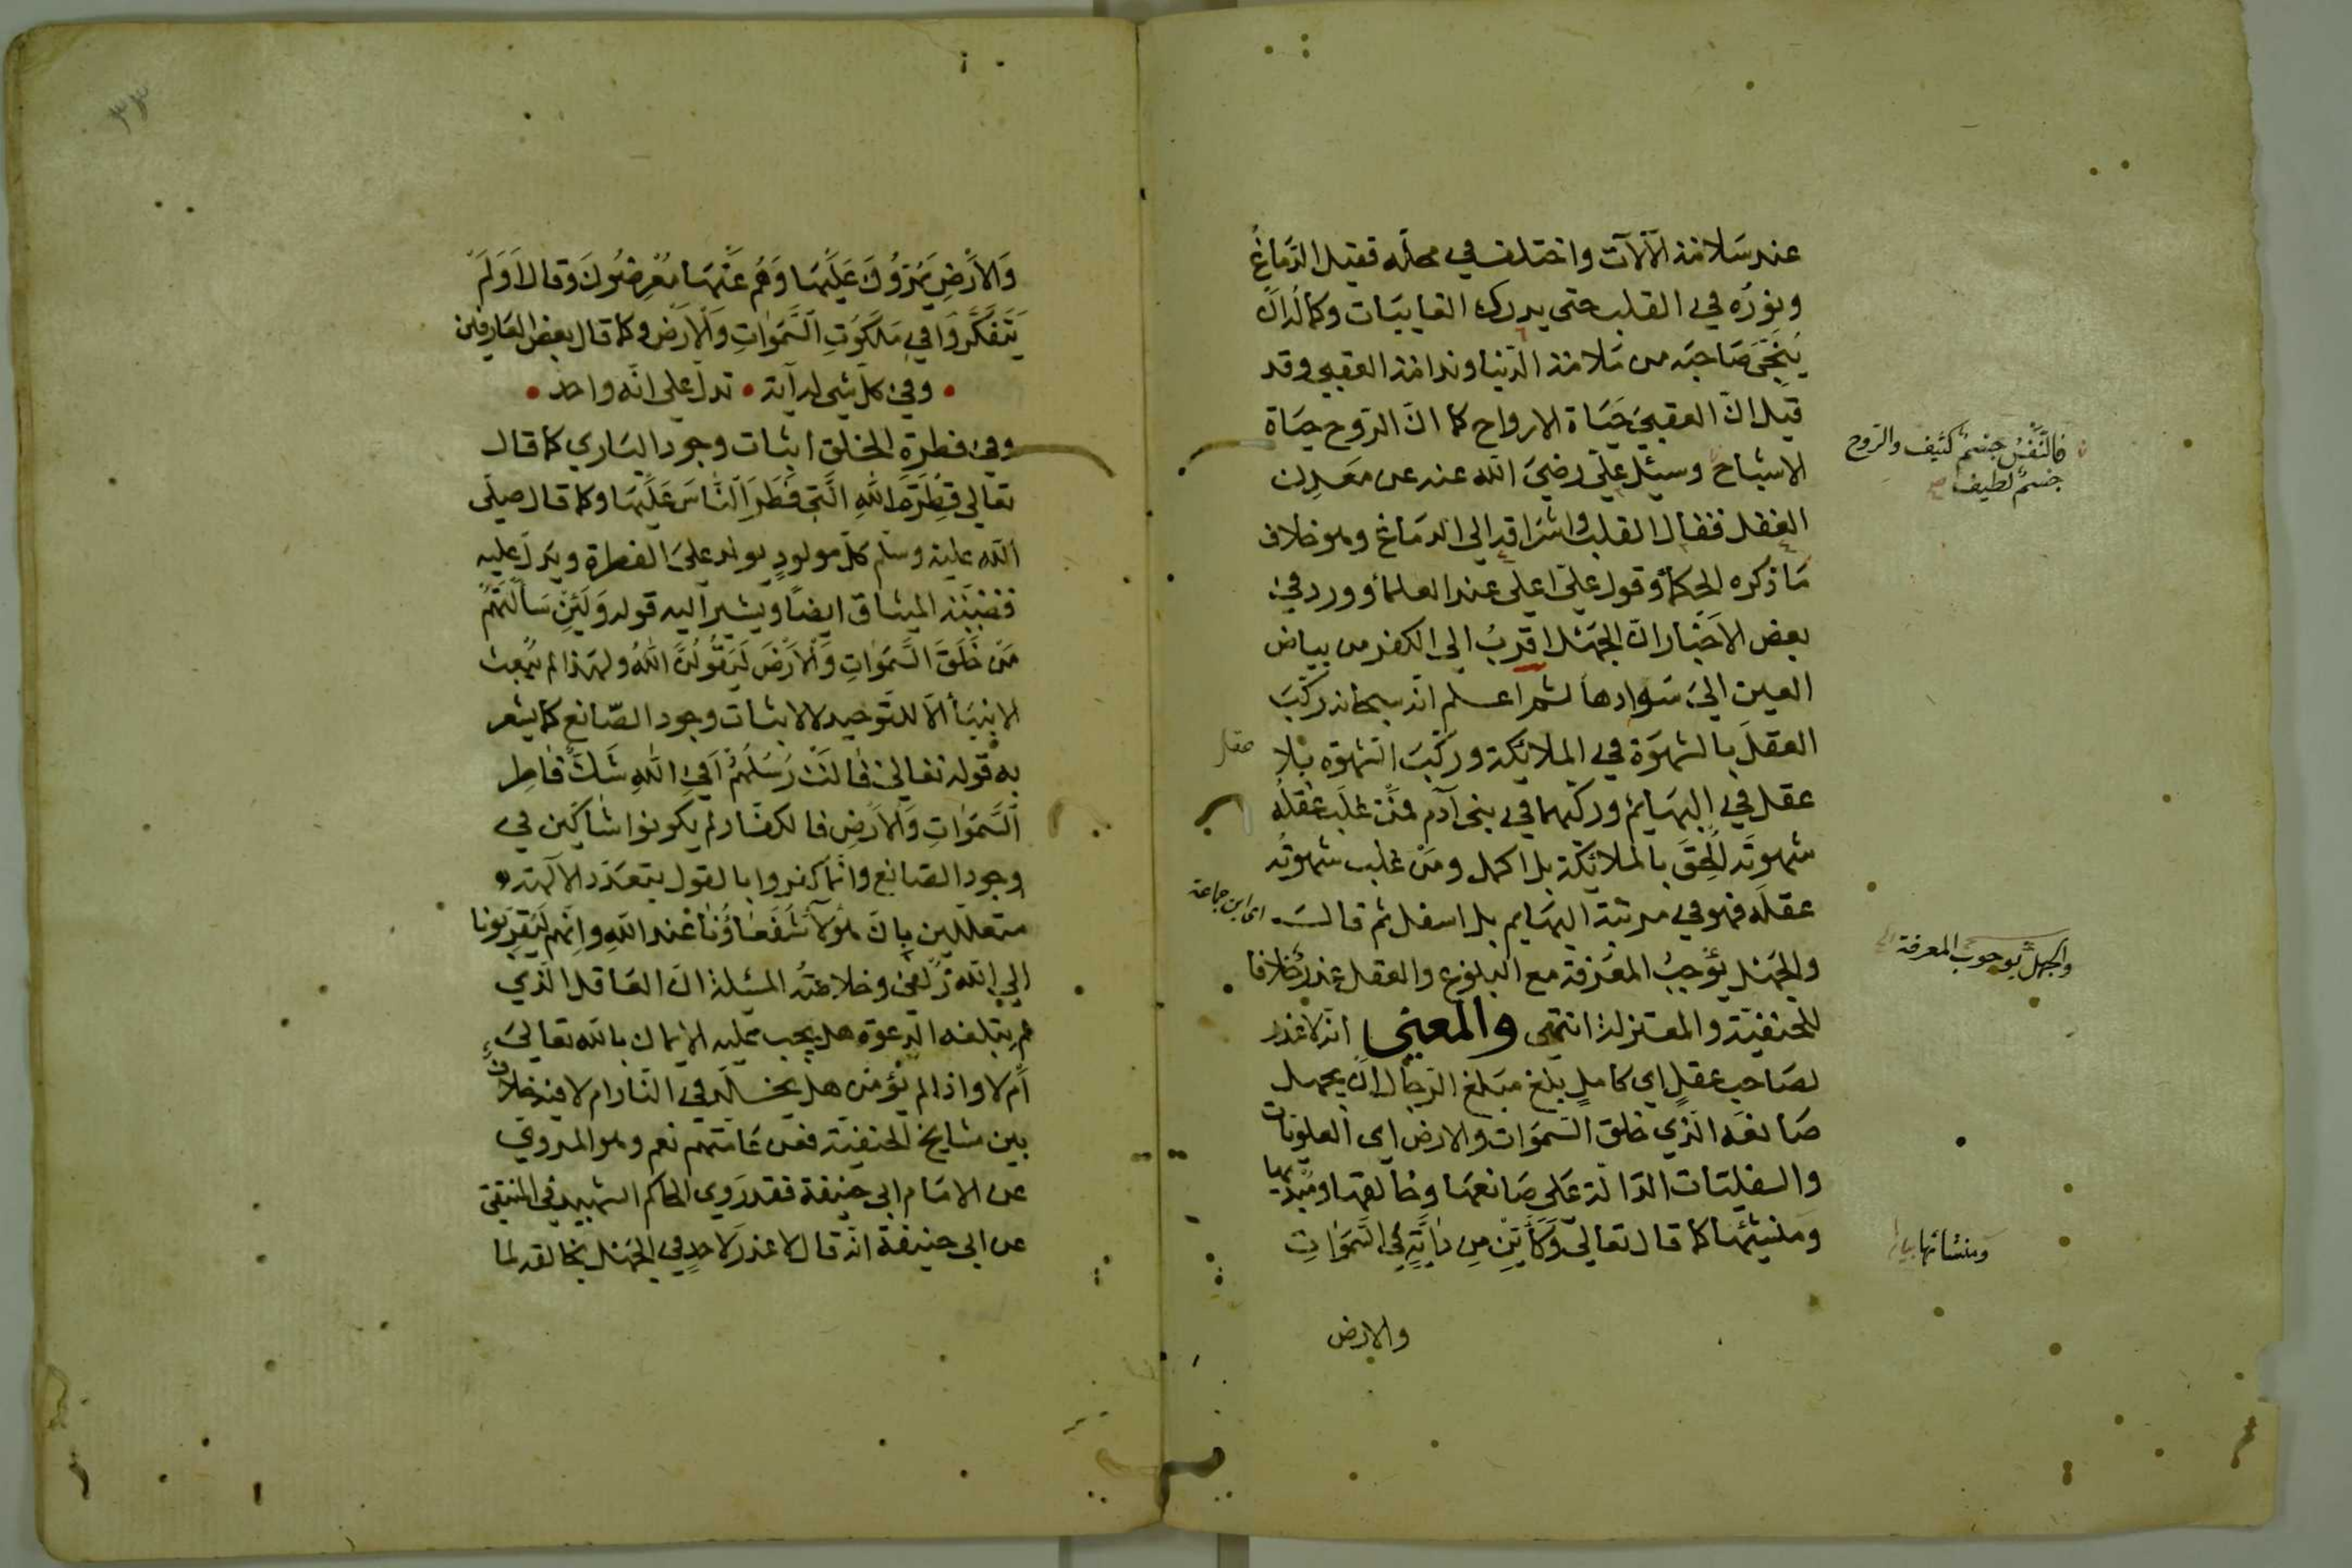 عند سَلامة الآلآت واختلف في محلّه فقيل الدِّماغُ
ونورُه في القلب حتى يدرك الغايبَات وكالُ
يُنجّيَ صَاحبَه من مَلامة الدّنيا وندامة العقبى وقد
قيل انّ العقبىَ حَيَاة الارواح كما انّ الرّوح حيَاة
الاشباح وسيُئل عليّ رضيَ اللّه عنه عن معَدِن
العقل فقال القلب واشرَاقه الى الدمَاغ وهو خلاف
مَا ذكره الحكمأ وقول عليّ اعلى عند العلمأ وورد في
بعض الاَخبَار انّ الجهَل اقربُ الى الكفر من بياض
العين الىَ سَوادها ثم اعلم انّه سبحانه ركّبَ
العقلَ بالشهوَة في الملائكة وركّبَ الشهوَة بلا
عقل في البهَايم وركّبهما في بنى آدم فمَنْ غلَب عقلُه
شهوتَه اُلحِقَ بالملائكة بل اكمل ومَنْ غلب شهوتُه
عقلَه فهو في مرتبة البهَايم بل اسفل ثم قالَ
والجهَل يُؤجِبُ المعَرفة مع البلوغ والعقل عندنا خلافا
للحنفيّة والمعتزلة انتهى والمعنى انّه لا عذر
لصَاحب عقلٍ اى كاملٍ بلغ مبَلغ الرّجال ان يجهل
صَانعَه الّذي خلق السّموَات والارض اى العلويّات
والسفليّات الدّالة عَلى صَانعهَا وخالقها ومبدّيها
ومَنشئهَا كما قال تعالىَ وَكَأَيِّنْ مِن اٰيَةٍ فِى السَّمَوَاتِ
والارض
فالنَّفْسُ جسمٌ كثيف والرّوح
جسْمٌ لطيف صح
عقل
اى ابن جماعة
والجهل بوجوب المعرفة
ومنشأتها
٣٣
وَالاَرْضِ يَمُرّوُنَ عَلَيْهَا وَهُم عَنْهَا مُعْرِضُونَ وَقال اَوَلَمْ
يَتَفَكَّرُوا في مَلَكُوتِ السَّمَوٰاتِ وَالْاَرَضِ وكما قال بعض العَارفين
• وفي كلّ شىء له آية • تدلّ على انّه واحد •
وفي فطرة الخلق اثبات وجود البَاري كما قال
تعالى فِطْرَةَ اللّهِ الَّتِى فَطَرَ النَّاسَ عَلَيْهَا وكما قال صلّى
اللّه عليه وسلّم كلّ مولودٍ يولد علىَ الفطرة ويدلّ عليه
قضيّة الميثاق ايضًا ويشير اليه قوله وَلَئِنْ سَاَلْتَهُمْ
مَنْ خَلَقَ السَّمَوَاتِ وَالْاَرْضَ لَيَقُولُنَّ اللّهُ ولهذا لم يبُعث
الانبيَأ الاّ للتّوحيد لا لاثبات وجود الصّانع كما يشعر
به قوله تعالى قالَتْ رُسُلُهُمْ اَفِي اللّهِ شَكٌّ فٰاطِر
السَّمَوَاتِ وَالْاَرضِ فالكفّار لم يكونوا شاكّين في
وجود الصّانع وانّما كفروا بالقول بتعَدّد الآلهة
متعللين بانّ هؤلآءِ شُفَعَاؤُنا عند اللّهِ وانّهم ليُقرّبونا
الى اللّه زُلفىٰ وخلاصةُ المسئلة انّ العَاقل الّذي
لم يبَلغه الدّعوَة هل يجب عليه الايمان باللّه تعالىَ
أم لا واذا لم يؤمن هل يخلّد في النّار ام لا فيه خلاف
بين مشايخ الحنفيّة فعن عَامّتهم نعم وهو المروىّ
عن الامَام ابى حنيفة فقد روى الحاكم الشهيد في المنتقىٰ
عن ابى حنيفة انّه قال لا عذر لاحدٍ في الجهل بخالقه لما